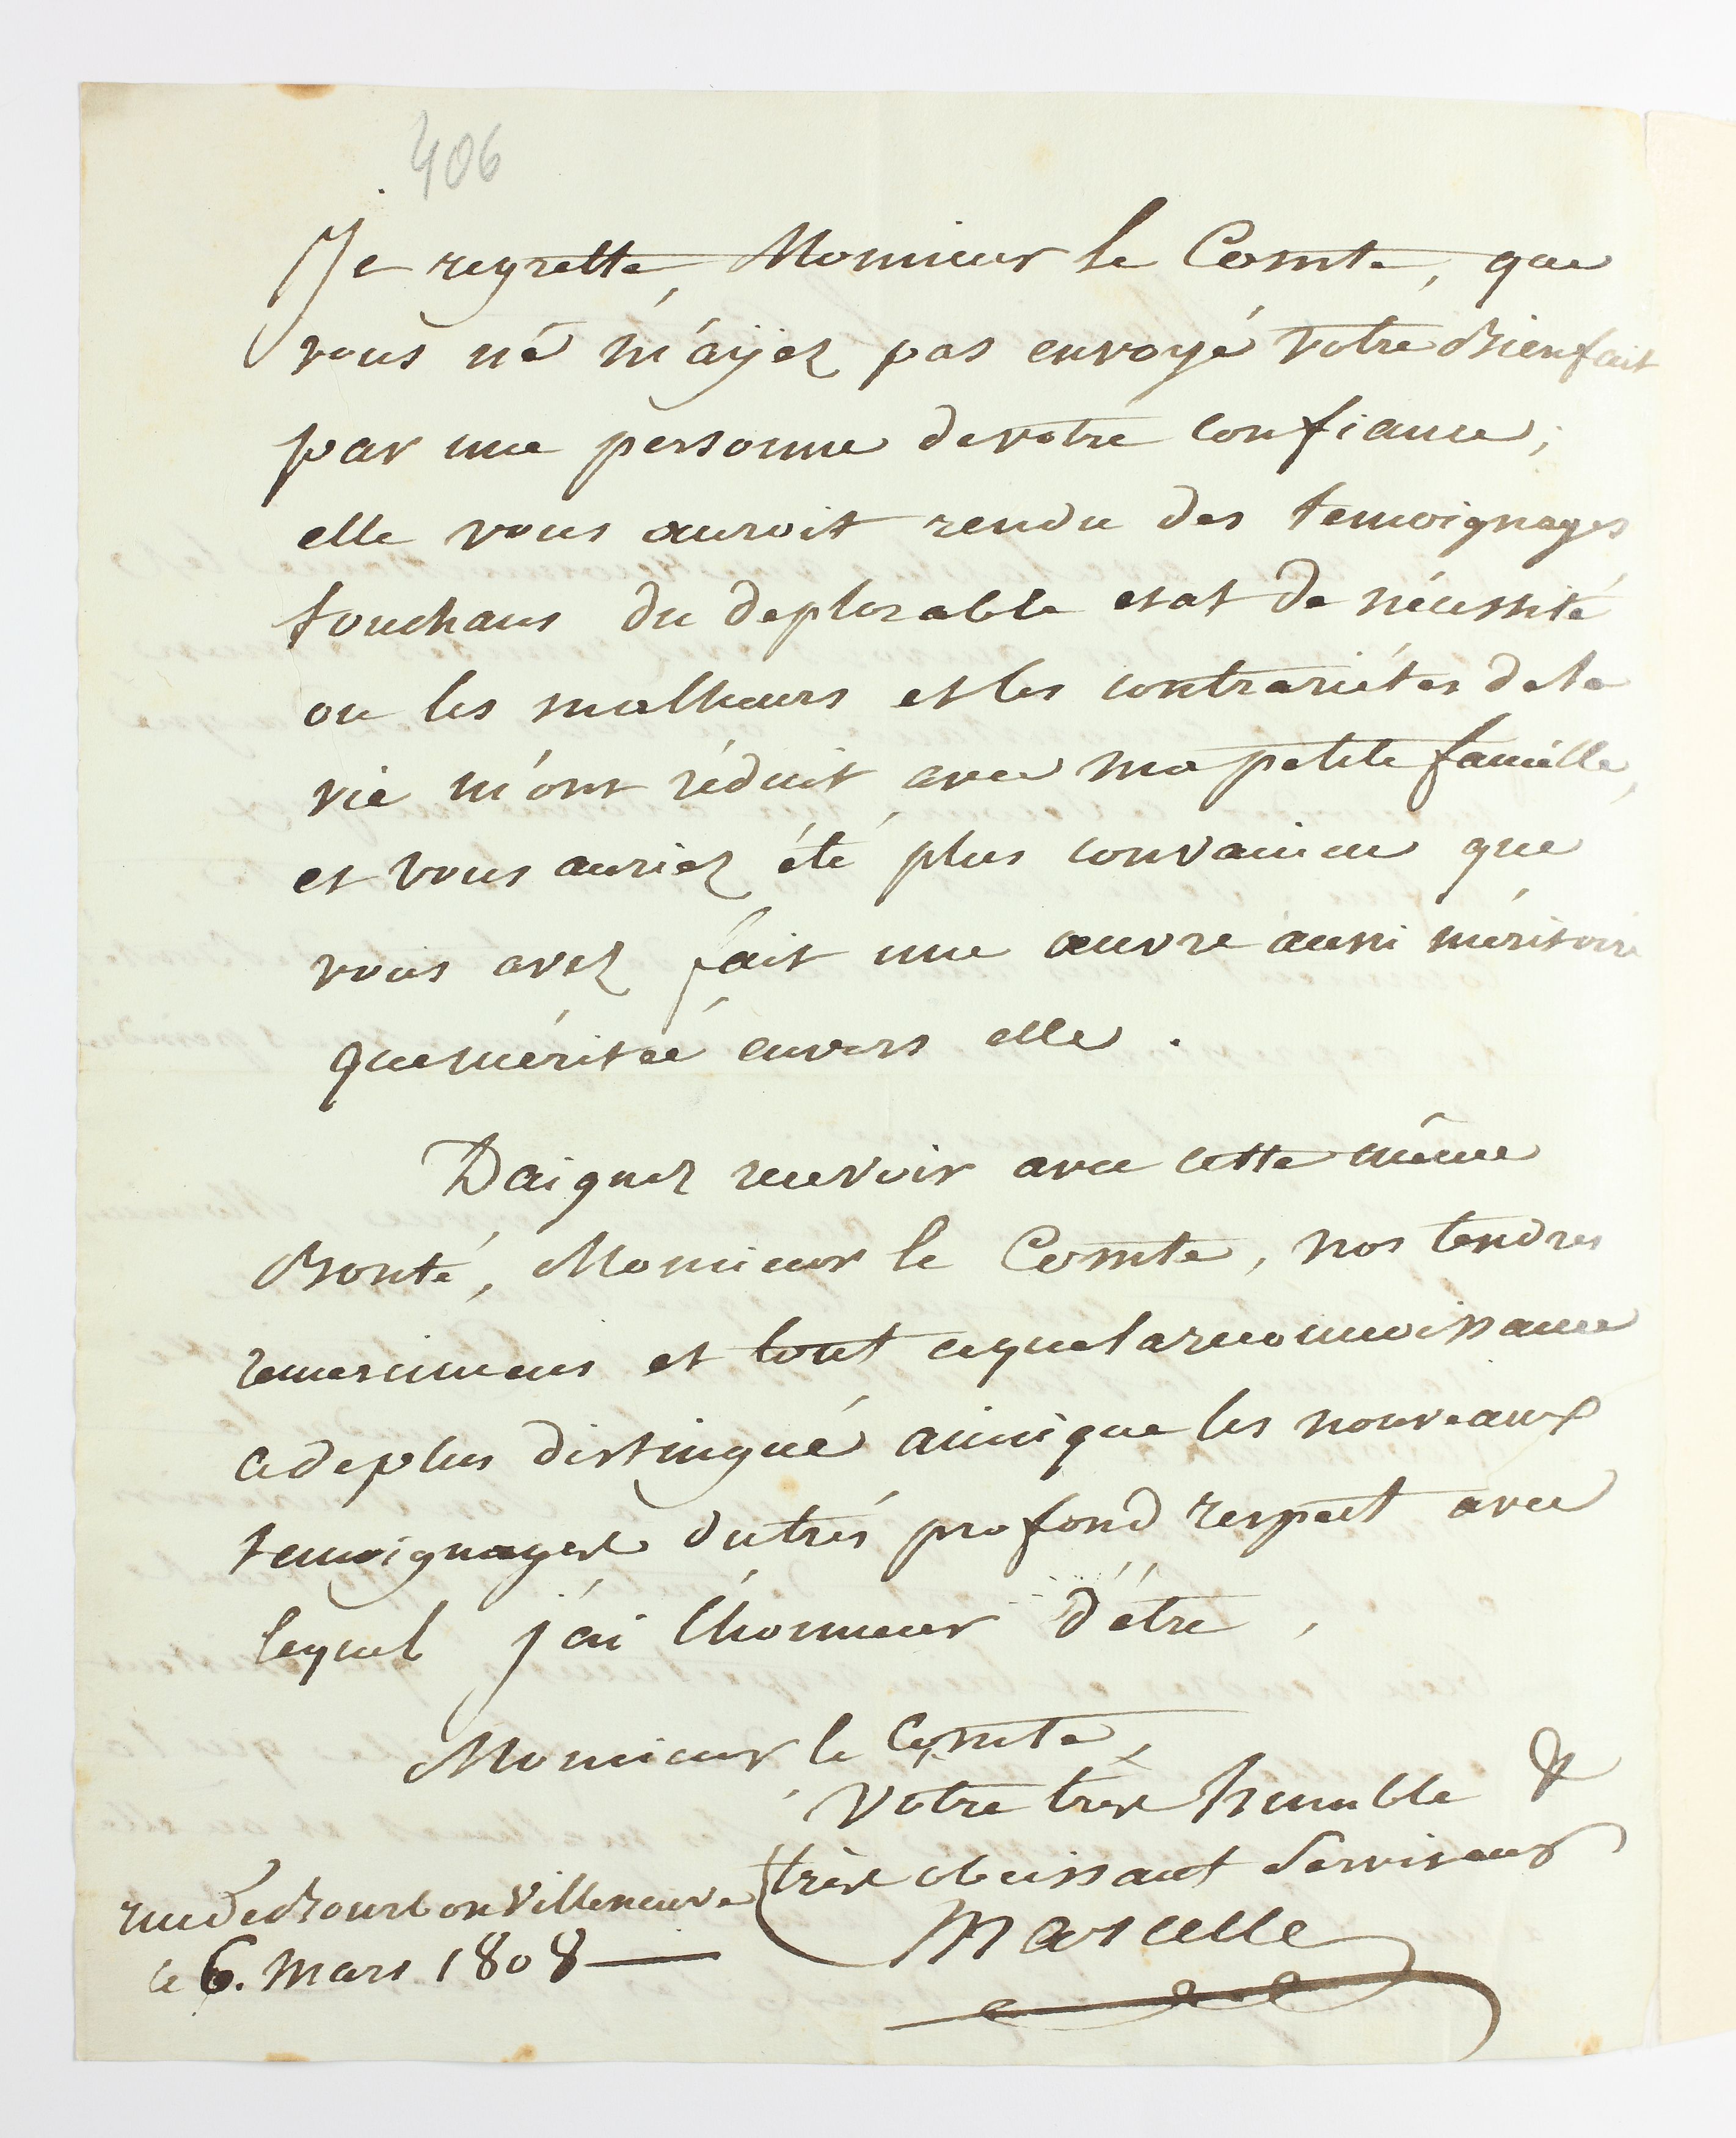 406
Je regrette, Monsieur le Comte, que
vous né m'ayez pas envoyé votre Bienfait
par une personne de votre confiance;
elle vous auroit rendu des temoignages
touchans du deplorable etat de nécessité
ou les malheurs et les contrariétes de la
vie m'ont réduit avec ma petite famille,
et vous auriez été plus convaincu que
vous avez fait une œuvre aussi méritoire
que méritée envers elle.
Daignez recevoir avec cette même
Bonté, Monsieur le Comte, nos tendres
remercimens et tout ce que la reconnoissance
a de plus distingué ainsi que les nouveaux
temoignages du trés profond respect avec
lequel j'ai l'honneur d'étre,
Monsieur le Comte,
Votre très humble &
très obeissant Serviteur
Marcelle
rue de Bourbon Villeneuve
ce 6. Mars 1808